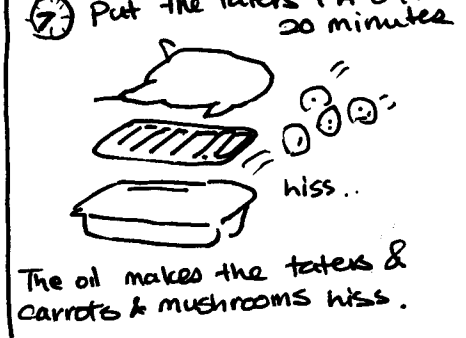 7 Put the taters
20 minutes
hiss..
The oil makes the taters &
carrots & mushrooms hiss.